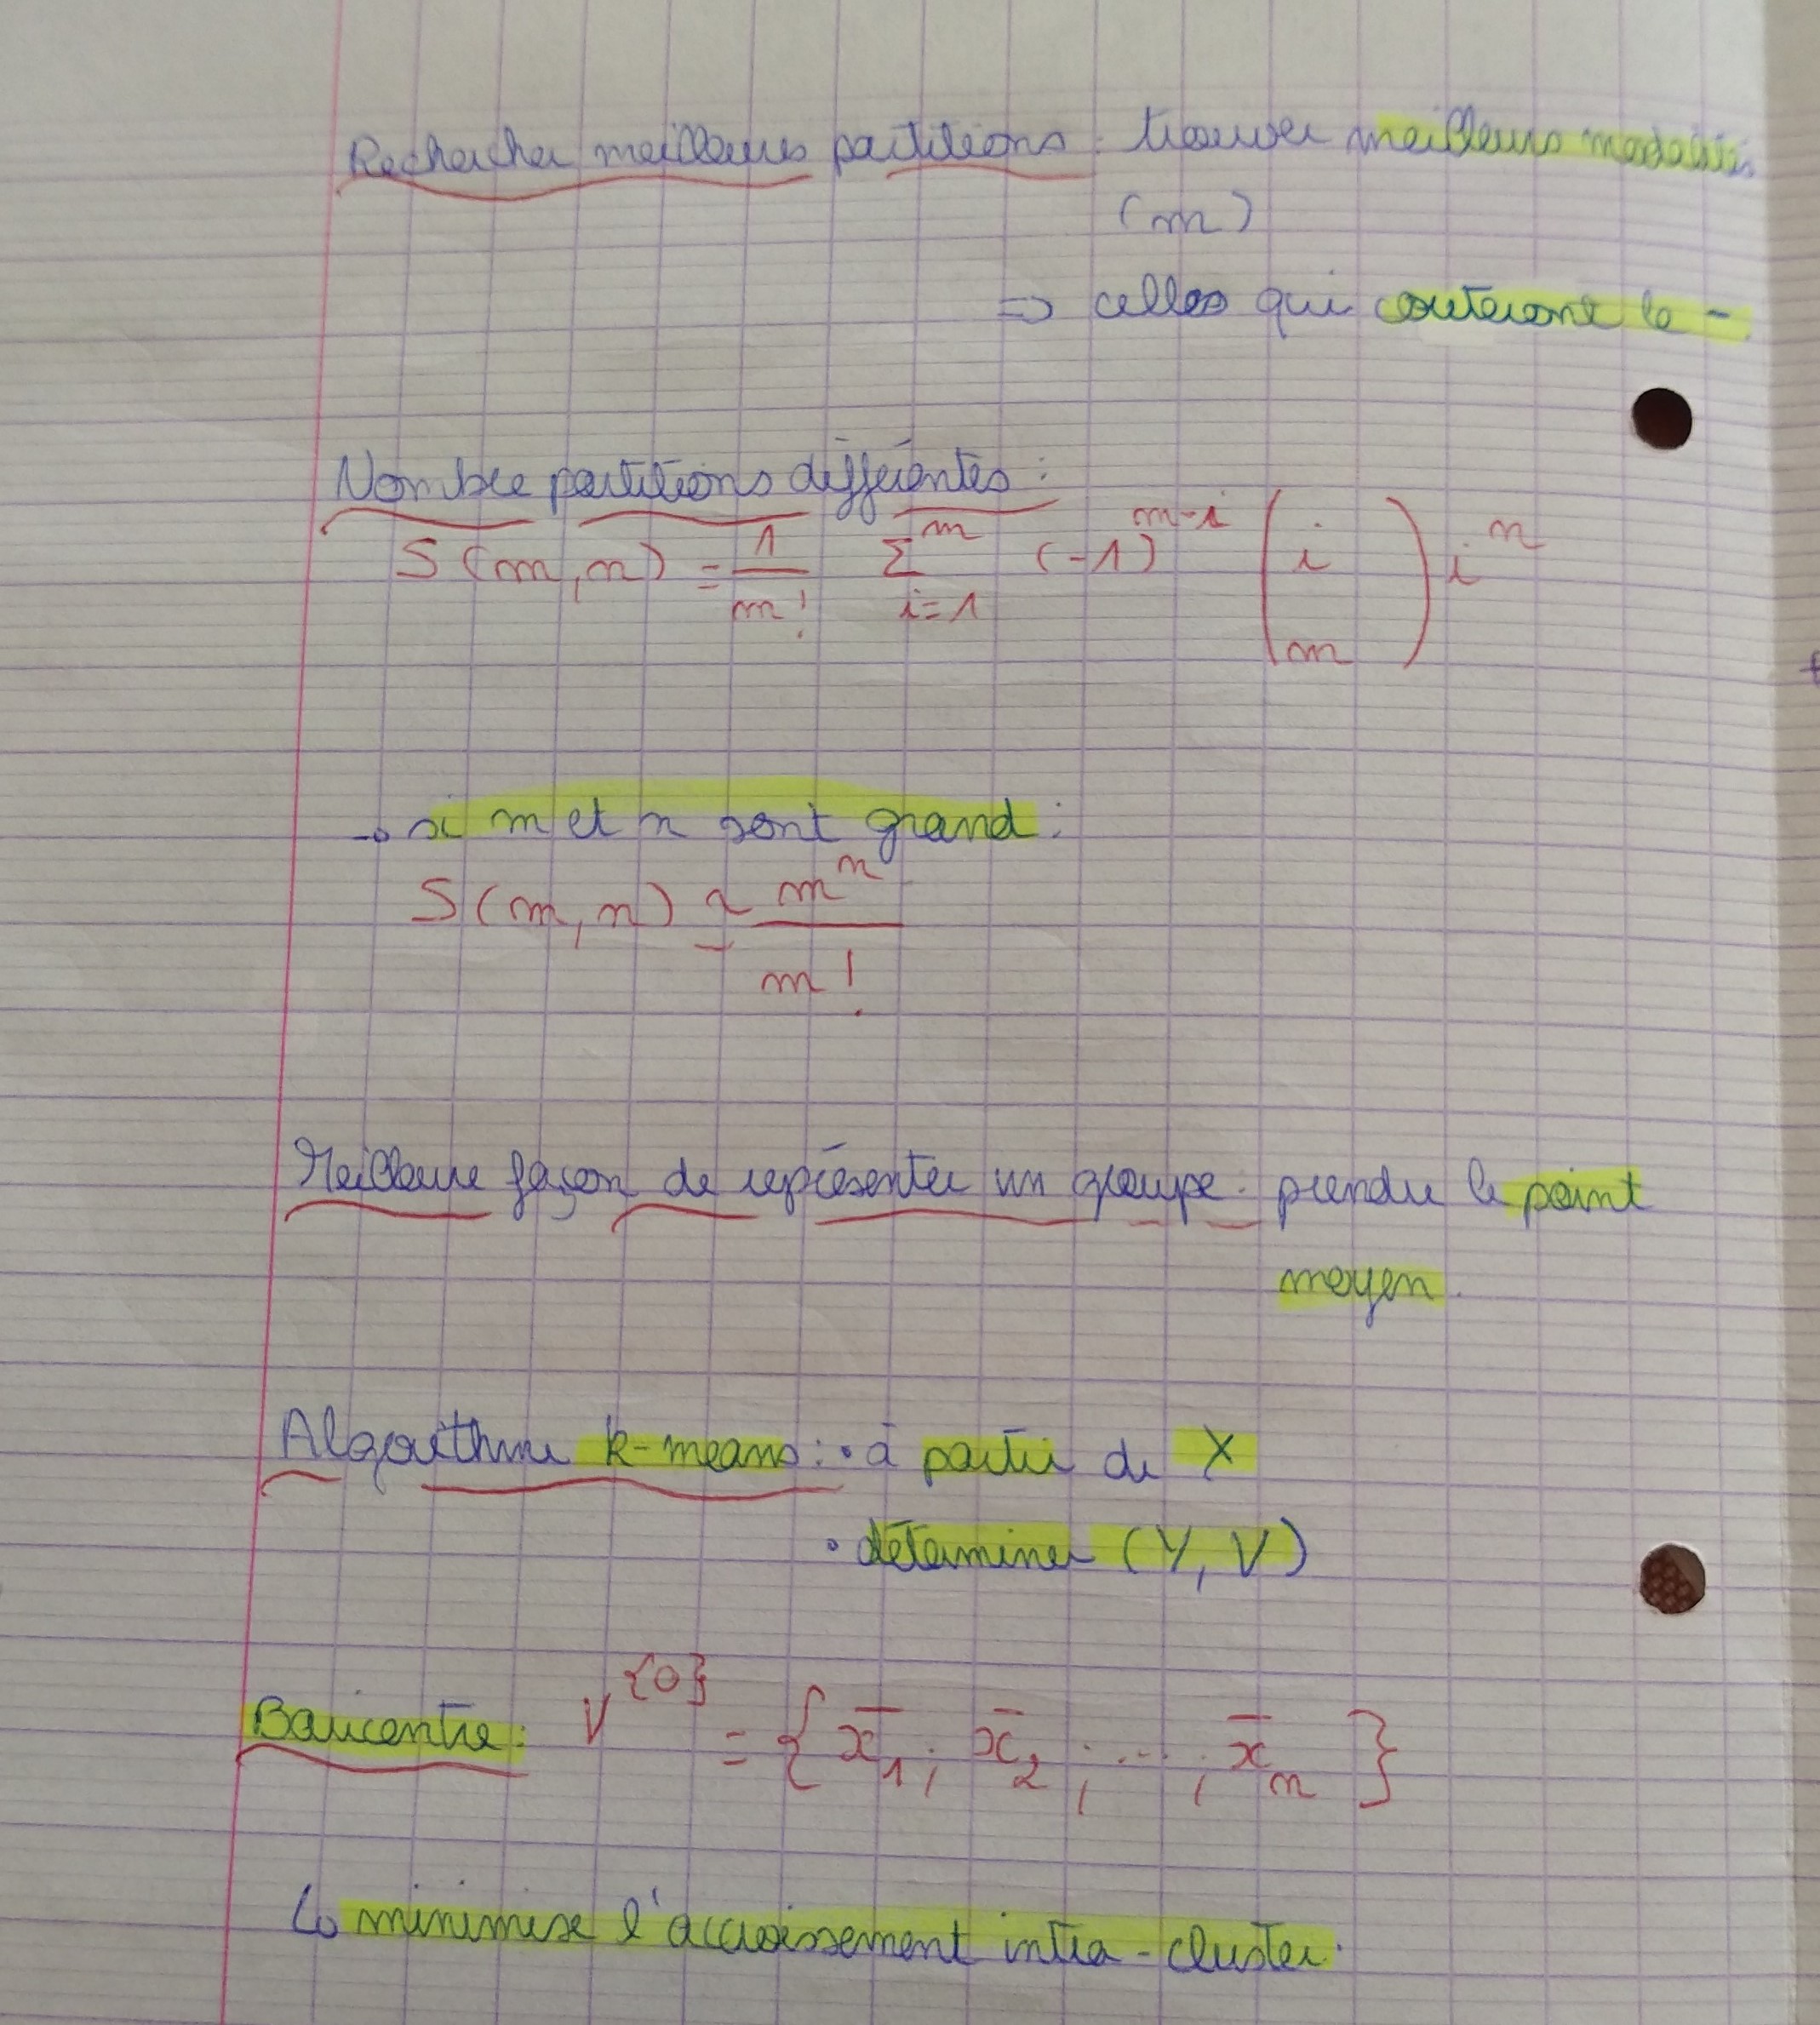 Rechercher meilleures partitions : trouver meilleurs modalités
(m)
=> celles qui couteront le -
Nombre partitions différentes :
S(m,n) = 1/m! Σ_{i=1}^{m} (-1)^{m-i} (i m) i^n
→ si m et n sont grand :
S(m,n) ≃ m^n / m!
Meilleure façon de représenter un groupe : prendre le point
moyen.
Algorithme k-means : • à partir de X
• déterminer (Y, V)
Baricentre : V^{0} = { x̄_1 ; x̄_2 ; ... ; x̄_n }
↳ minimise l'accroissement intra-cluster.